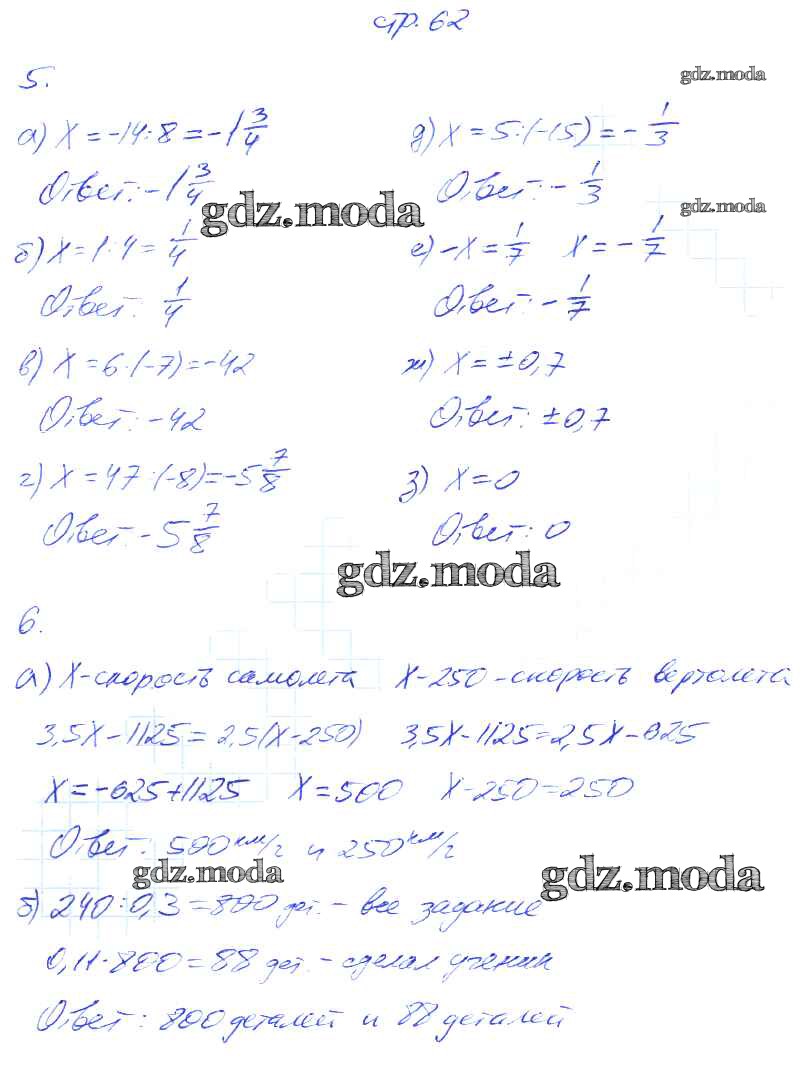 стр. 62
gdz.moda
5.
а) X = -14 : 8 = -1 3/4
Ответ: -1 3/4
gdz.moda
б) X = 1 : 4 = 1/4
Ответ: 1/4
в) X = 6 · (-7) = -42
Ответ: -42
г) X = 47 : (-8) = -5 7/8
Ответ: -5 7/8
д) X = 5 : (-15) = -1/3
Ответ: -1/3
gdz.moda
е) -X = 1/7 X = -1/7
Ответ: -1/7
ж) X = ±0,7
Ответ: ±0,7
з) X = 0
Ответ: 0
gdz.moda
6.
а) X - скорость самолета X - 250 - скорость вертолета
3,5X - 1125 = 2,5(X - 250) 3,5X - 1125 = 2,5X - 625
X = -625 + 1125 X = 500 X - 250 = 250
Ответ: 500 км/ч и 250 км/ч
gdz.moda
gdz.moda
б) 240 : 0,3 = 800 дет. - все задание
0,11 · 800 = 88 дет. - сделал ученик
Ответ: 800 деталей и 88 деталей